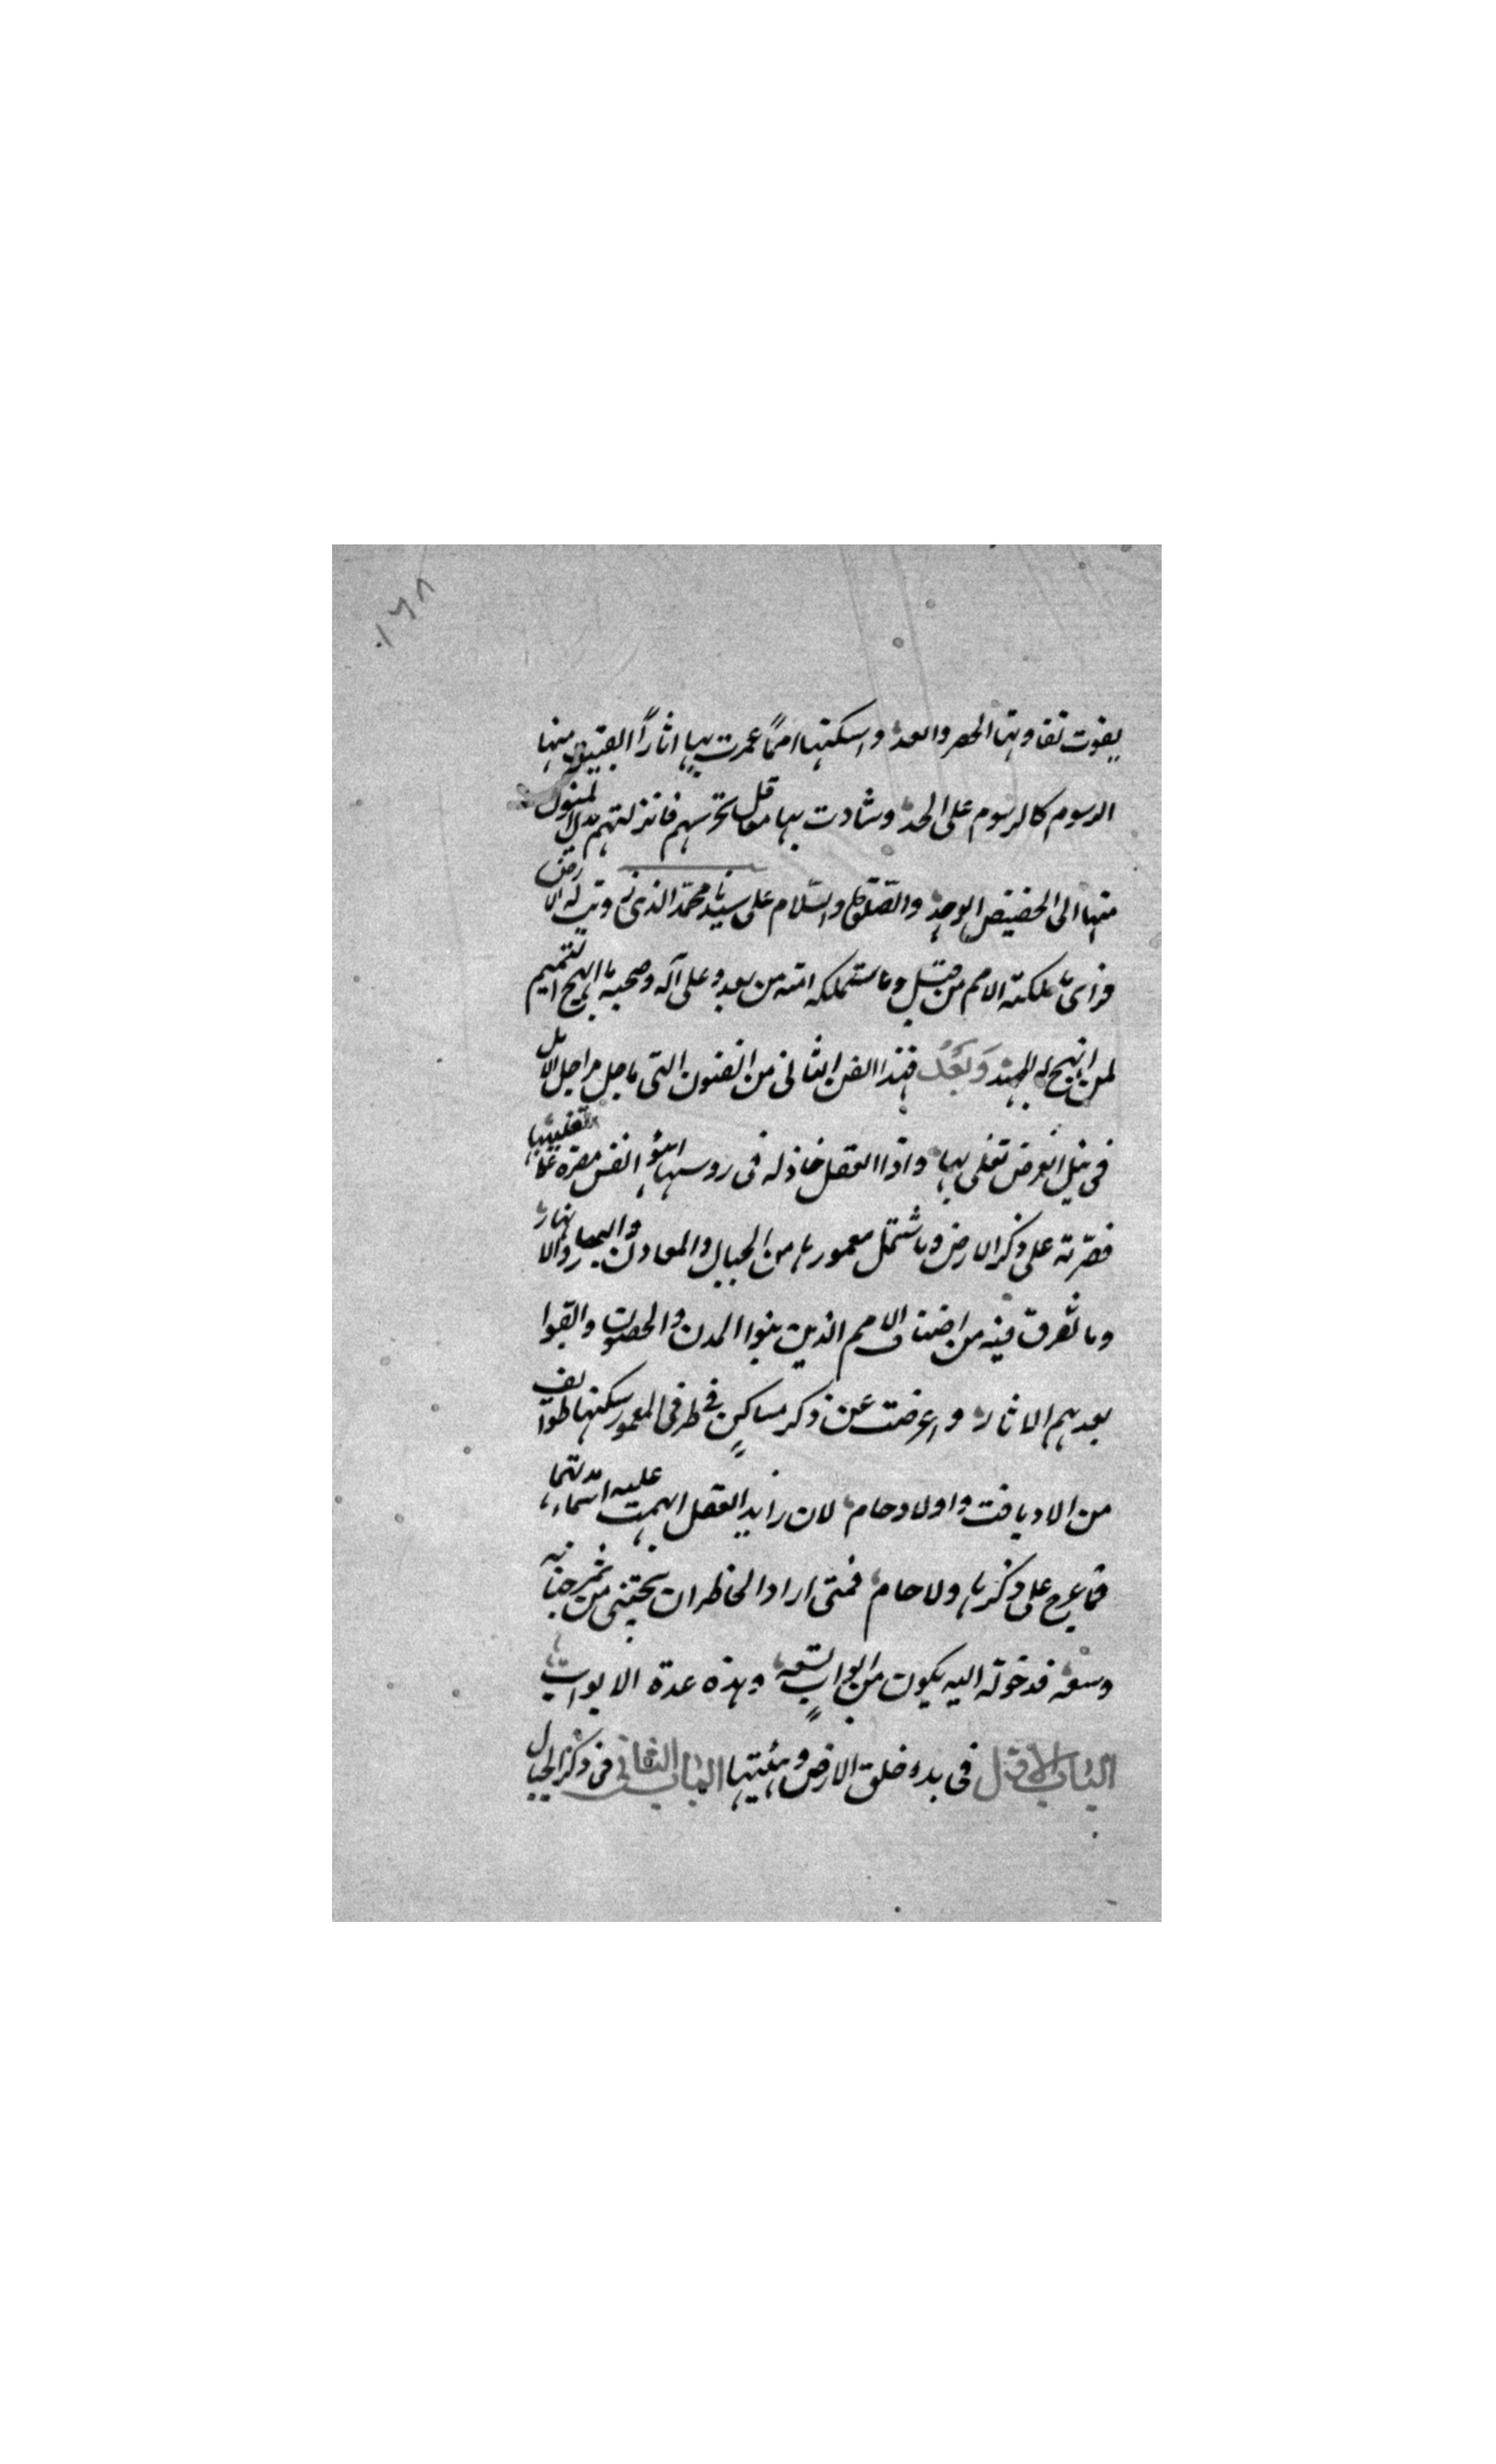 ١٦٨
يفوت تفاوتها الحصر والعد واسكنتها امماً عمرت بها اثاراً ابقيت منها
الرسوم كالرسوم على الحد وشادت بها معاقل تحرسهم فانزلتهم المنون
منها الى الحضيض الوهد والصلوة والسلام على سيدنا محمد الذى زويت له الارض
فراى ما ملكته الامم من قبل وما ستملكه امته من بعد وعلى آله وصحبه ما ابهج
لمن انهج له وبعد فهذا الفن الثانى من الفنون التى مراجل الامل
فى نيل الغرض تغلى بها واذا العقل خاذله فى
قصرته على ذكر الارض وما اشتمل معمورها من الجبال والمعادن والبحار والانهار
وما تفرق فيه من اصناف الامم الذين بنوا المدن والحصون وابقوا
بعدهم الاثار واعرضت عن ذكر مساكن في طرفى المعمور سكنها طوائف
من اولاد يافث واولاد حام لان رايد العقل ابهمت عليه اسماء
فما عرج على ذكرها ولا حام فمتى اراد الخاطر ان يجتنى من ثمر جنابه
وسعه فدخوله اليه يكون من ابواب تسعه وهذه عدة الابواب
الباب الاول فى بدء خلق الارض وهيئتها الباب الثانى فى ذكر الجبال